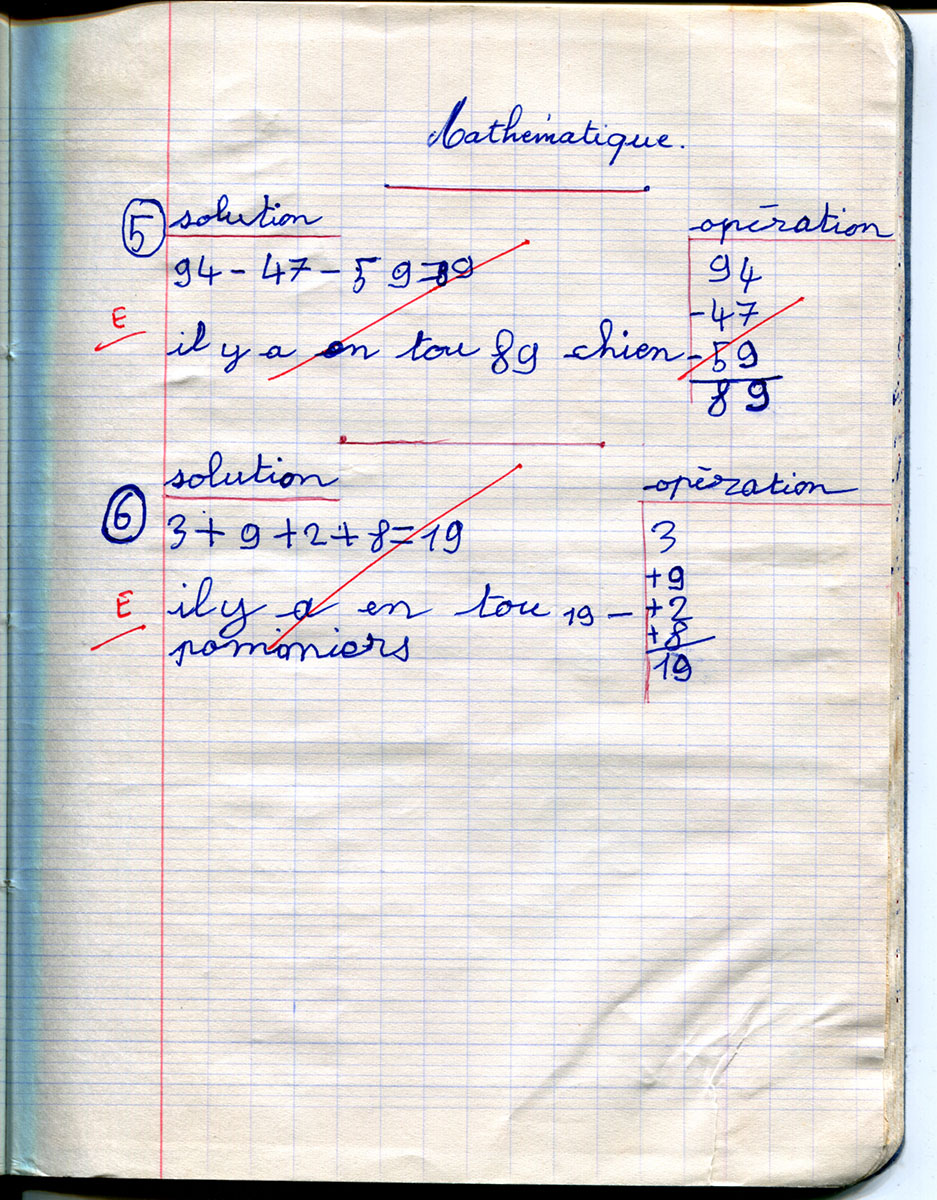 Mathématique.
5 solution
94 - 47 - 59 = 89
E
il y a en tou 89 chien
opération
94
- 47
- 59
89
6 solution
3 + 9 + 2 + 8 = 19
E
il y a en tou 19 -
pommiers
opèration
3
+ 9
+ 2
+ 8
19